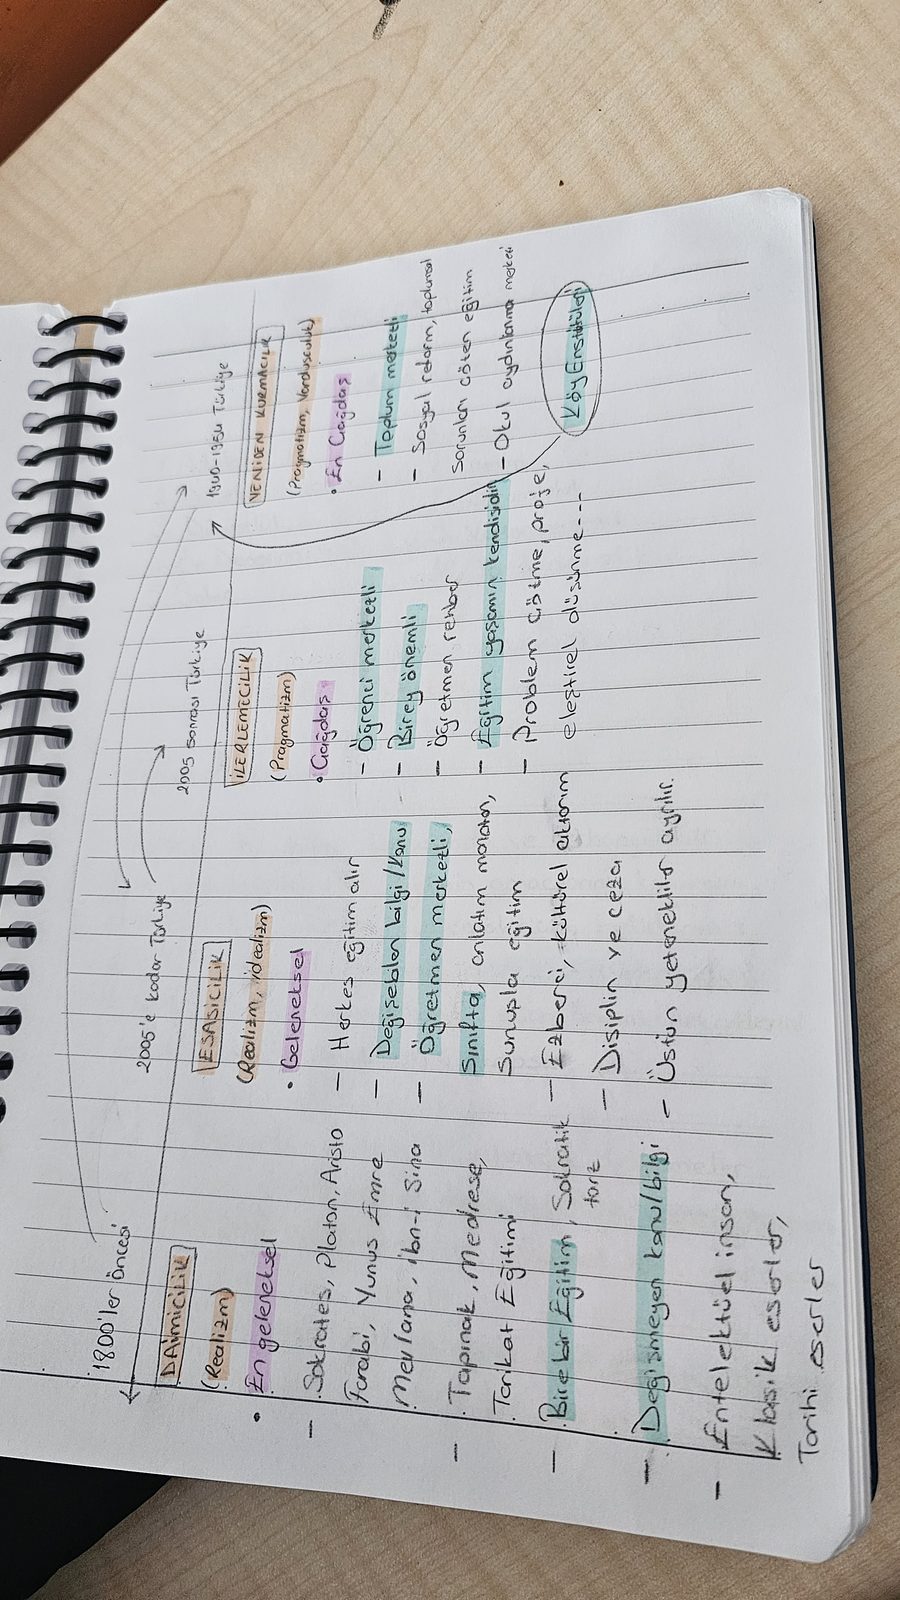 1800'ler Öncesi
DAİMİCİLİK
(Realizm)
• En geleneksel
- Sokrates, Platon, Aristo
Farabi, Yunus Emre
Mevlana, İbn-i Sina
- Tapınak, Medrese,
Tarikat Eğitimi
- Birebir Eğitim, Sokratik
tarz
- Değişmeyen konu/bilgi
- Entelektüel insan,
Klasik eserler,
Tarihi eserler
2005'e kadar Türkiye
ESASİCİLİK
(Realizm, idealizm)
• Geleneksel
- Herkes eğitim alır
- Değişebilen bilgi/konu
- Öğretmen merkezli,
Sınıfta, anlatım monoton,
Sunuşla eğitim
- Ezberci, kültürel aktarım
- Disiplin ve ceza
- Üstün yetenekliler ayrılır.
2005 sonrası Türkiye
İLERLEMECİLİK
(Pragmatizm)
• Çağdaş
- Öğrenci merkezli
- Birey önemli
- Öğretmen rehber
- Eğitim yaşamın kendisidir
- Problem çözme, proje,
eleştirel düşünme...
1940-1954 Türkiye
YENİDEN KURMACILIK
(Pragmatizm, Varoluşçuluk)
• En Çağdaş
- Toplum merkezli
- Sosyal reform, toplumsal
sorunları çözen eğitim
- Okul aydınlanma merkezi
Köy Enstitüleri